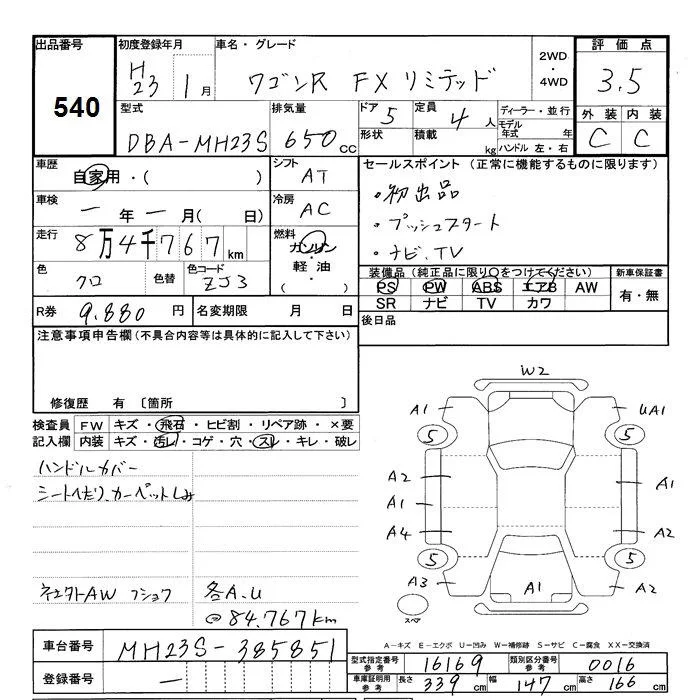 出品番号 初度登録年月 車名・グレード 2WD・4WD 評価点
540 H23 1月 ワゴンR FX リミテッド 3.5
型式 排気量 ドア 5 定員 4人 ディーラー・並行 外装 内装
DBA-MH23S 650cc 形状 積載 kg モデル年式 年 ハンドル 左・右 C C
車歴 自家用・( ) シフト AT セールスポイント (正常に機能するものに限ります)
・初出品
車検 一年一月( 日) 冷房 AC ・プッシュスタート
走行 8万4千767km 燃料 ガソリン・軽油( ) ・ナビ、TV
色 クロ 色替 色コード ZJ3 装備品 (純正品に限り○をつけてください) 新車保証書
PS PW ABS エアB AW 有・無
SR ナビ TV カワ
R券 9.880円 名変期限 月 日 後日品
注意事項申告欄(不具合内容等は具体的に記入して下さい)
修復歴 有 〔箇所 〕
検査員 FW キズ・飛石・ヒビ割・リペア跡・×要
記入欄 内装 キズ・汚レ・コゲ・穴・スレ・キレ・破レ
ハンドルカバー
シートへたり、カーペットしみ
AW 各A.U
@84.767km
W2
A1 UA1
5 5
A2 A1
A1
A4 A2
5 5
A3 A1 A2
スペア
A-キズ E-エクボ U-凹み W-補修跡 S-サビ C-腐食 XX-交換済
車台番号 MH23S-385851
型式指定番号 参考 16169 類別区分番号 参考 0016
登録番号 一
車庫証明用 参考 長さ 339cm 幅 147cm 高さ 166cm